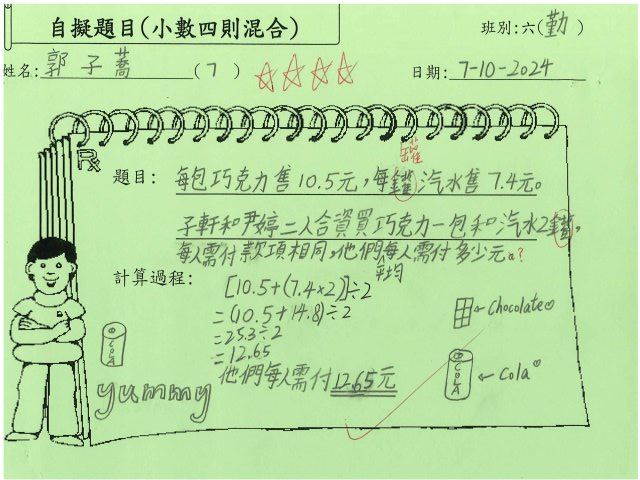 自擬題目(小數四則混合)
班別:六(勤)
姓名:郭子蕎(7)
日期:7-10-2024
罐
題目: 每包巧克力售10.5元,每罐汽水售7.4元。
子軒和尹婷二人合資買巧克力一包和汽水2罐,
每人需付款項相同,他們每人需付多少元?
平均
計算過程:
[10.5+(7.4×2)]÷2
=(10.5+14.8)÷2
=25.3÷2
=12.65
他們每人需付12.65元
←Chocolate
COLA
←Cola
COLA
yummy